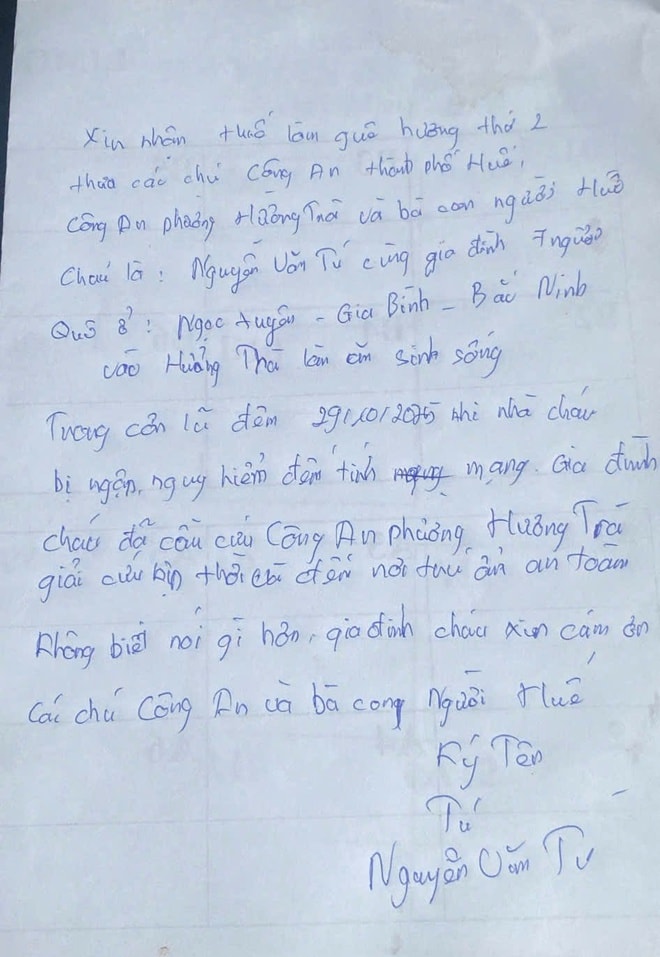 Xin nhận Huế làm quê hương thứ 2
thưa các chú Công An thành phố Huế,
Công An phường Hương Trà và bà con người Huế
Cháu là: Nguyễn Văn Tú cùng gia đình 7 người
Quê ở: Ngọc Xuyên - Gia Bình - Bắc Ninh
vào Hương Trà làm ăn sinh sống
Trong cơn lũ đêm 29/10/2025 khi nhà cháu
bị ngập, nguy hiểm đến tính mạng. Gia đình
cháu đã cầu cứu Công An phường Hương Trà
giải cứu kịp thời đến nơi trú ẩn an toàn
Không biết nói gì hơn, gia đình cháu xin cám ơn
Các chú Công An và bà con Người Huế
Ký Tên
Tú
Nguyễn Văn Tú